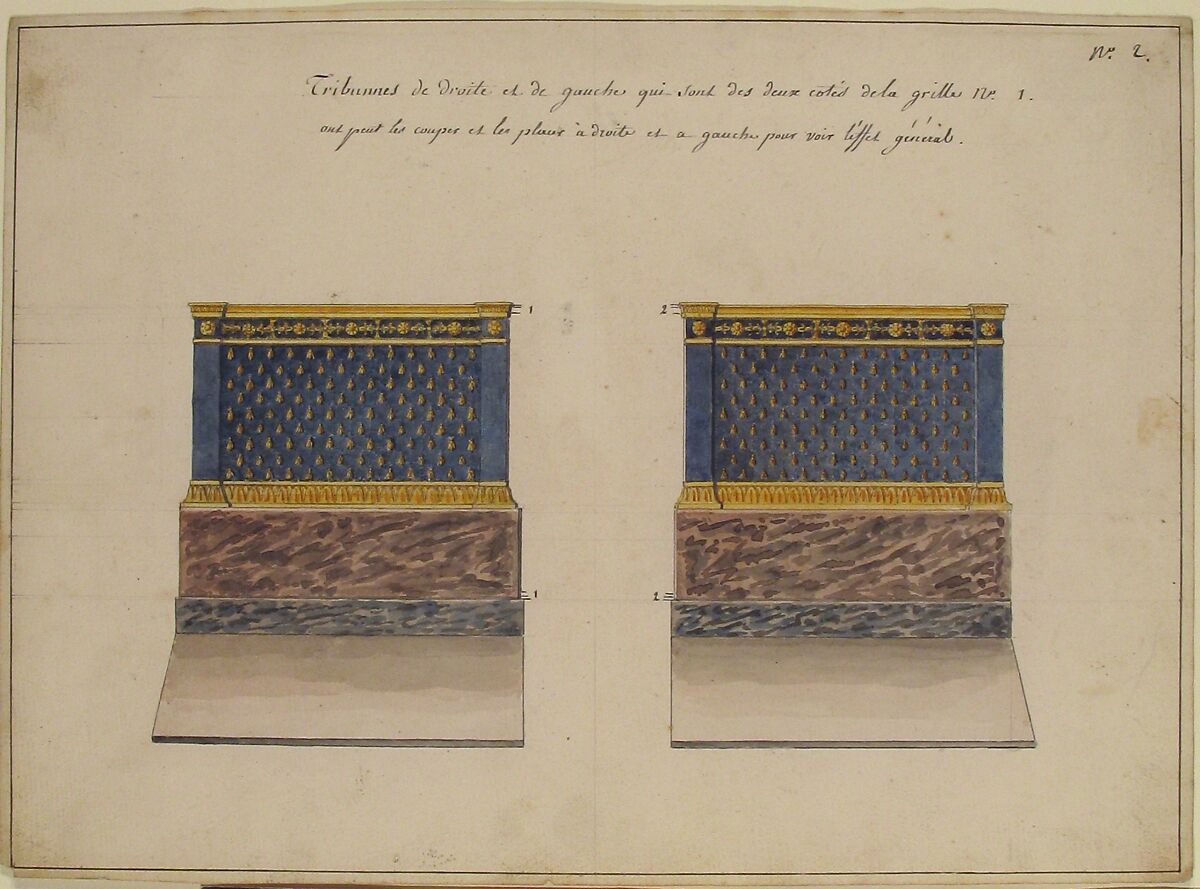 Nº. 2.
Tribunnes de droite et de gauche qui sont des deux côtés de la grille Nº. 1.
ont peut les couper et les plaier à droite et a gauche pour voir l'éffet général.
1
2
1
2